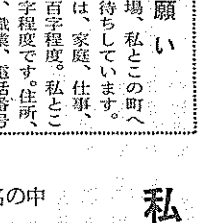 願い
場、私とこの町へ
待ちしています。
は、家庭、仕事、
百字程度。私とこ
字程度です。住所、
職業、電話番号
私
名の中